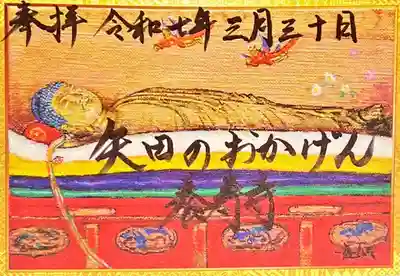 奉拝 令和七年三月三十日
矢田のおかげん
泰寿寺